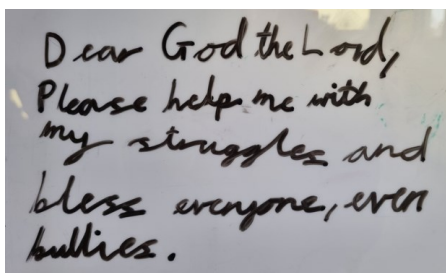 Dear God the Lord,
Please help me with
my struggles and
bless everyone, even
bullies.